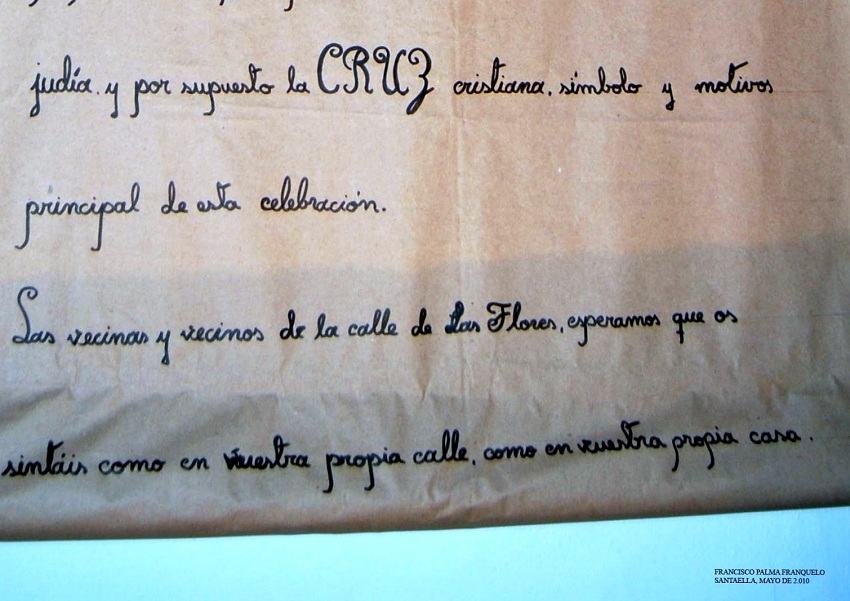 judía, y por supuesto la CRUZ cristiana, símbolo y motivos
principal de esta celebración.
Las vecinas y vecinos de la calle de Las Flores, esperamos que os
sintáis como en vuestra propia calle, como en vuestra propia casa.
FRANCISCO PALMA FRANQUELO
SANTAELLA, MAYO DE 2.010